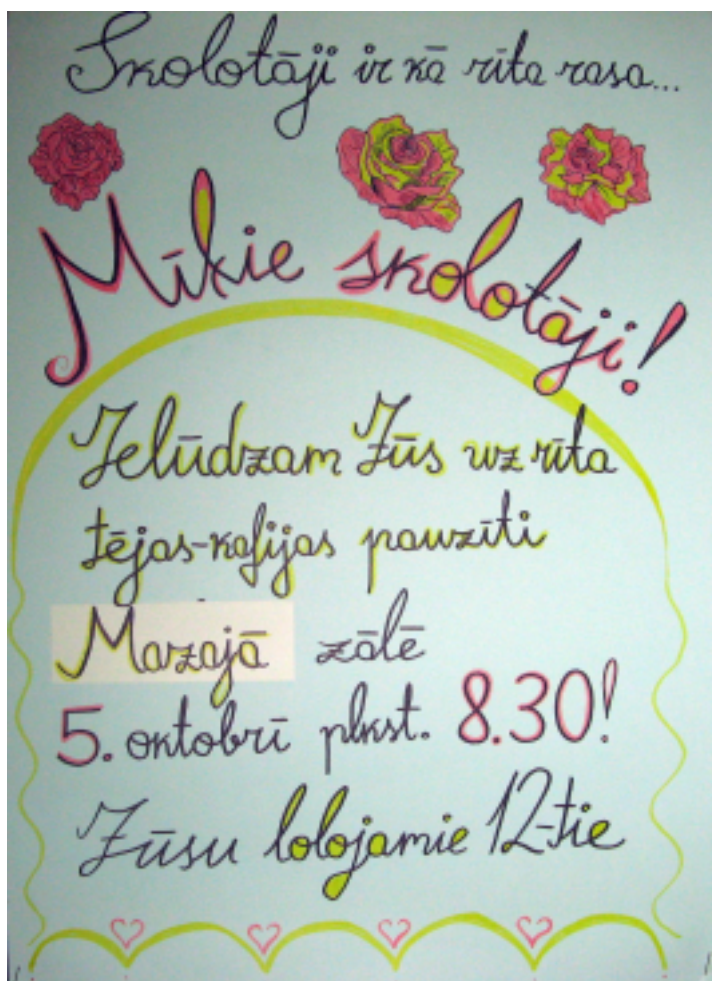 Skolotāji ir kā rīta rasa...
Mīļie skolotāji!
Ielūdzam Jūs uz rīta
tējas-kafijas pauzīti
Mazajā zālē
5. oktobrī plkst. 8.30!
Jūsu lolojamie 12-tie